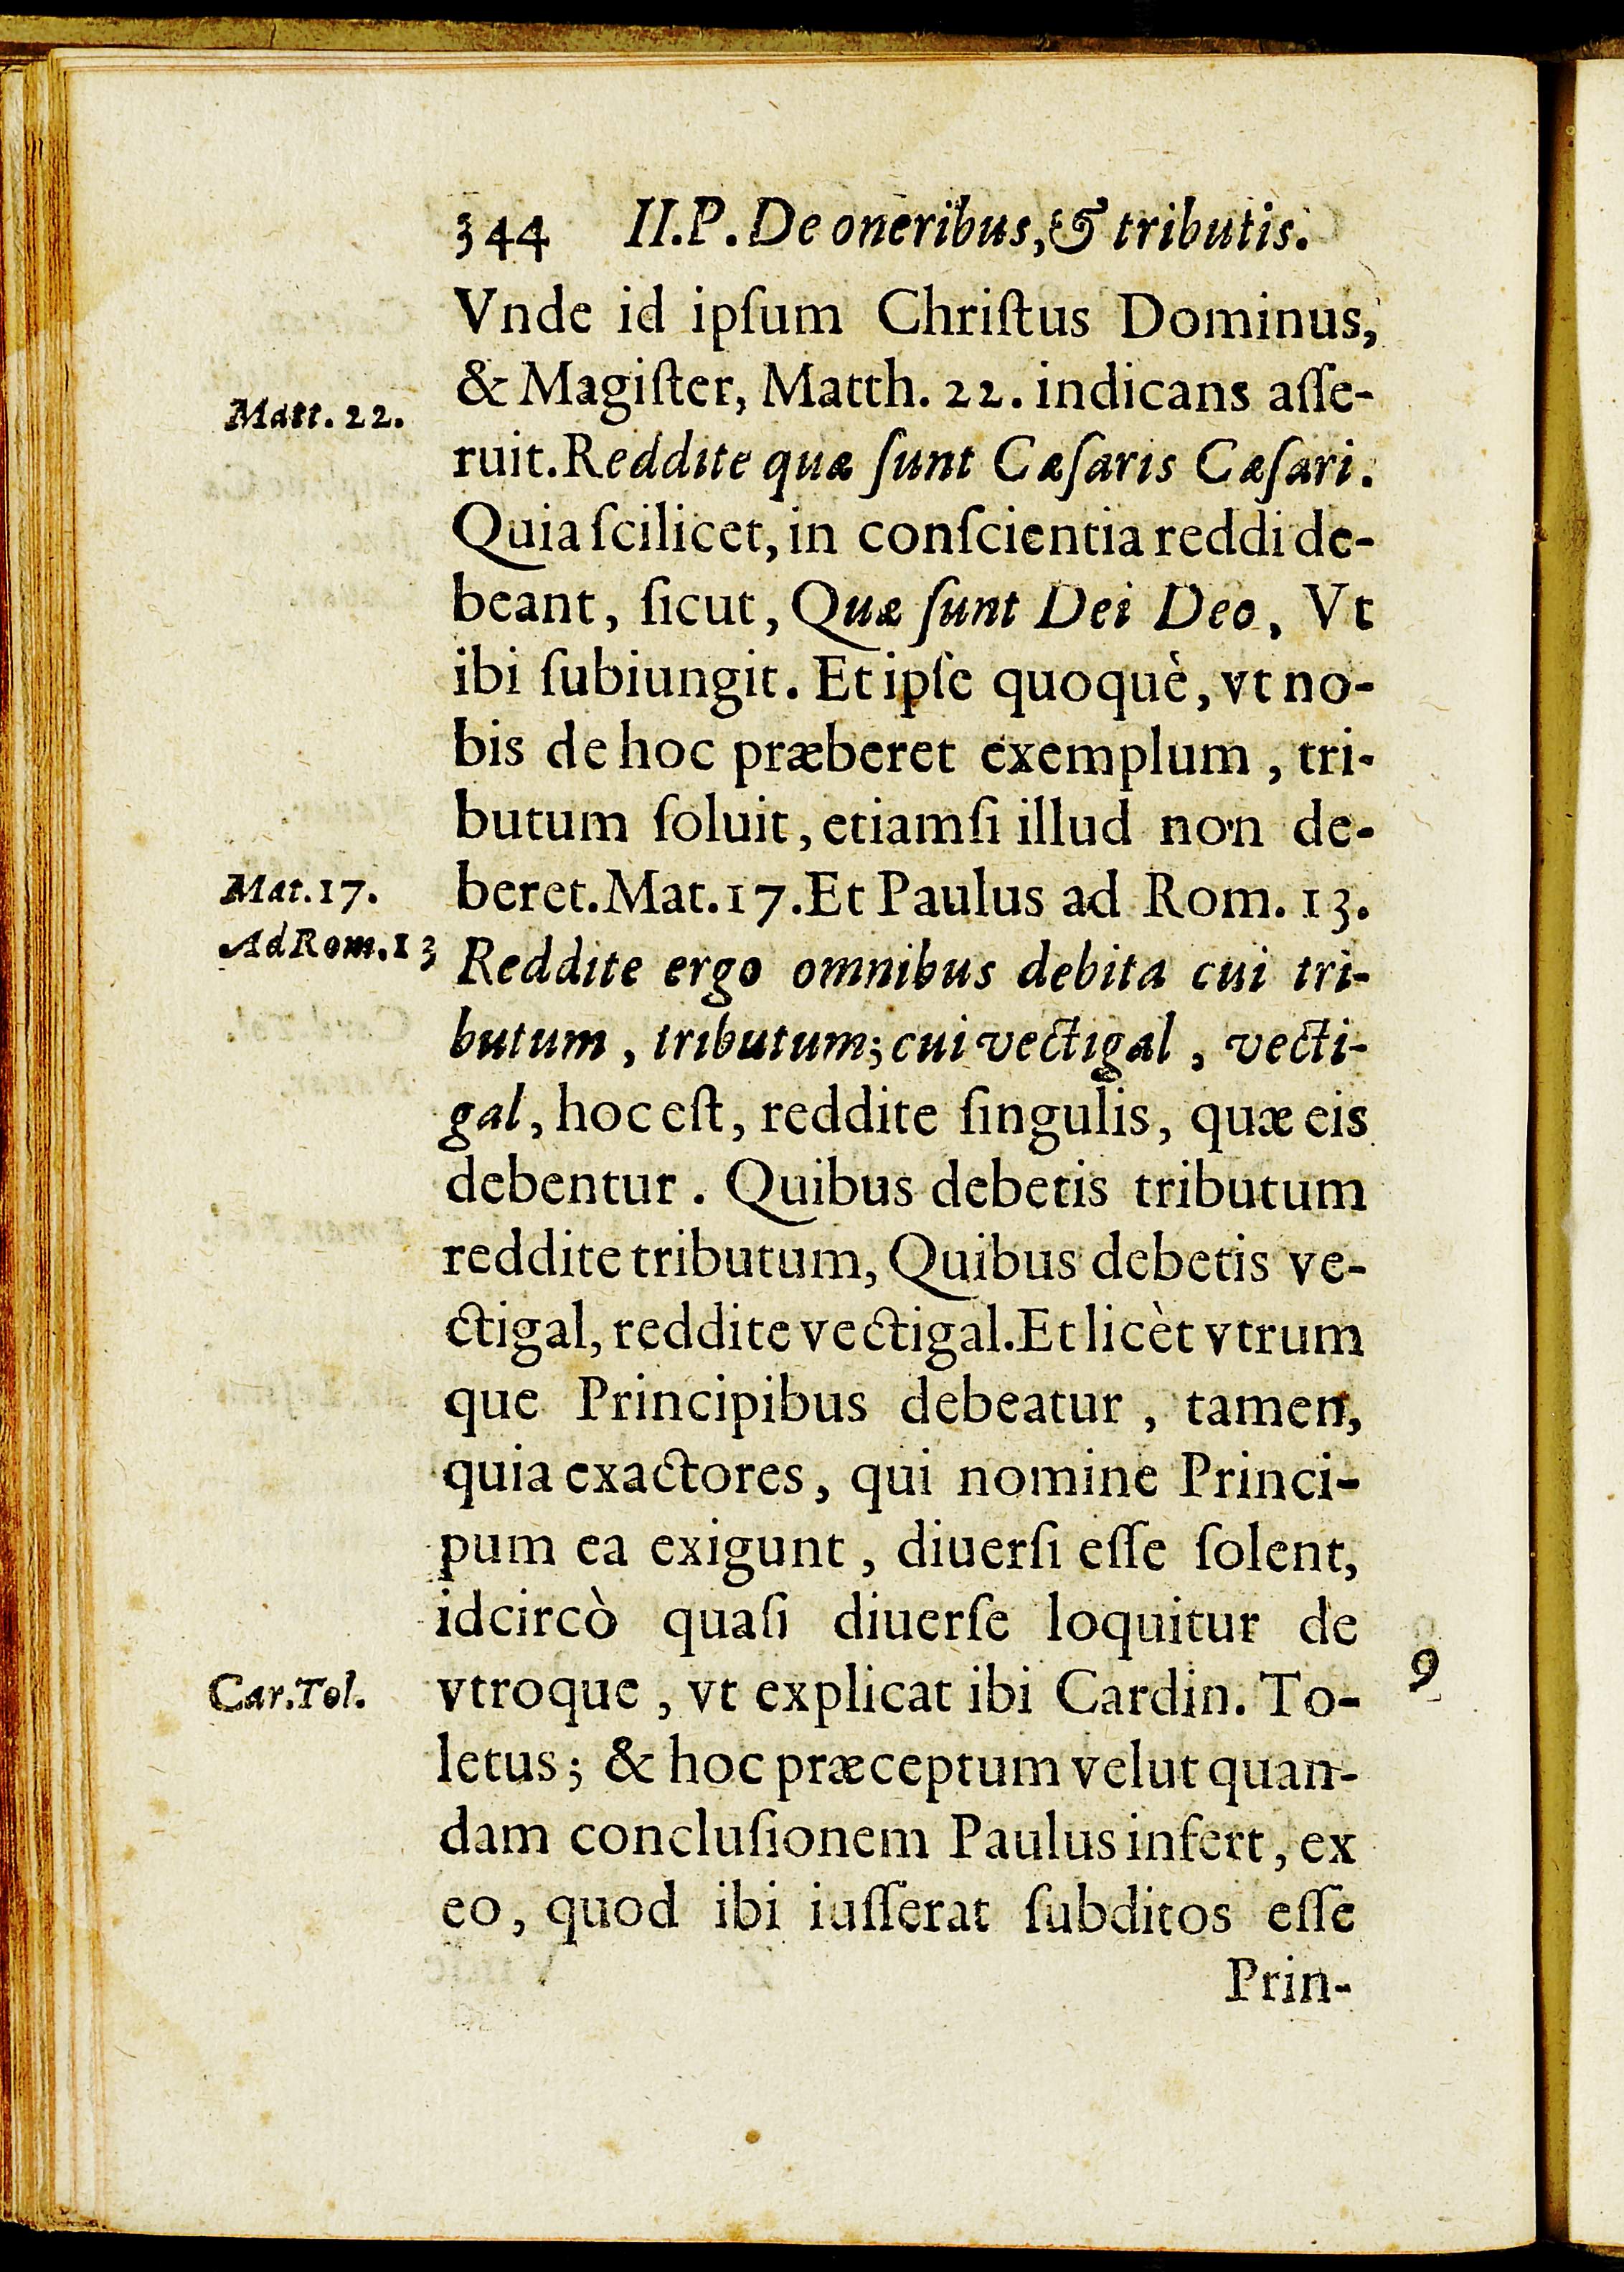 344 II.P. De oneribus, & tributis.
Vnde id ipſum Chriſtus Dominus,
& Magiſter, Matth. 22. indicans aſſe-
Matt. 22.
ruit. Reddite quæ ſunt Cæſaris Cæſari.
Quia ſcilicet, in conſcientia reddi de-
beant, ſicut, Quæ ſunt Dei Deo, Vt
ibi ſubiungit. Et ipſe quoquè, vt no-
bis de hoc præberet exemplum, tri-
butum ſoluit, etiamſi illud non de-
Mat. 17.
beret. Mat. 17. Et Paulus ad Rom. 13.
Ad Rom. 13
Reddite ergo omnibus debita cui tri-
butum, tributum; cui vectigal, vecti-
gal, hoc eſt, reddite ſingulis, quæ eis
debentur. Quibus debetis tributum
reddite tributum, Quibus debetis ve-
ctigal, reddite vectigal. Et licèt vtrum
que Principibus debeatur, tamen,
quia exactores, qui nomine Princi-
pum ea exigunt, diuerſi eſſe ſolent,
idcircò quaſi diuerſe loquitur de
Car. Tol.
vtroque, vt explicat ibi Cardin. To-
9
letus; & hoc præceptum velut quan-
dam concluſionem Paulus infert, ex
eo, quod ibi iuſſerat ſubditos eſſe
Prin-